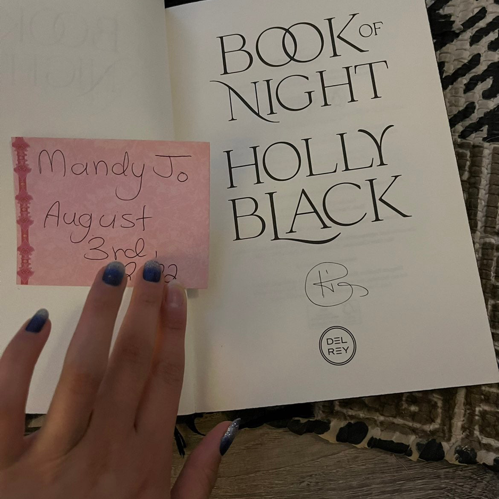 Mandy Jo
August
3rd,
BOOK OF
NIGHT
HOLLY
BLACK
DEL
REY